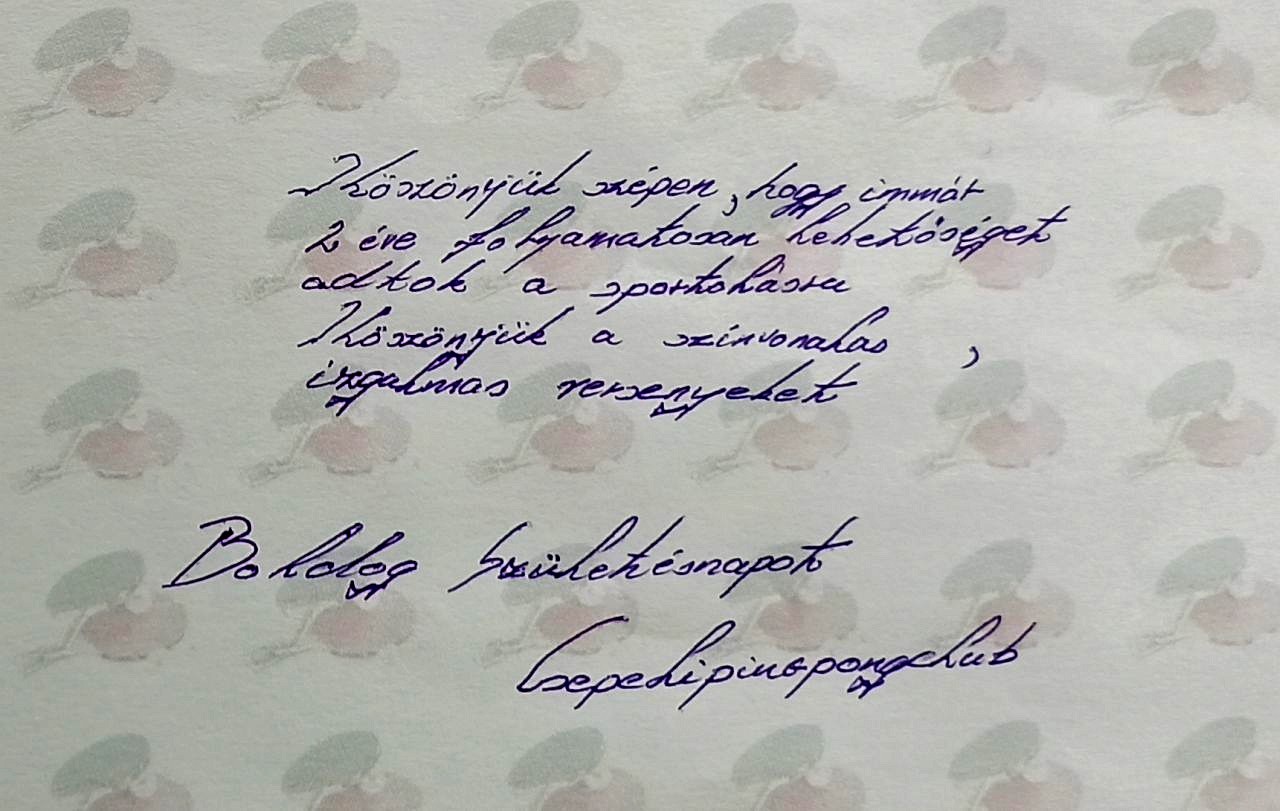 Köszönjük szépen, hogy immár
2 éve folyamatosan lehetőséget
adtok a sportolásra
Köszönjük a színvonalas,
izgalmas versenyeket
Boldog Születésnapot
Csepelipingpongclub